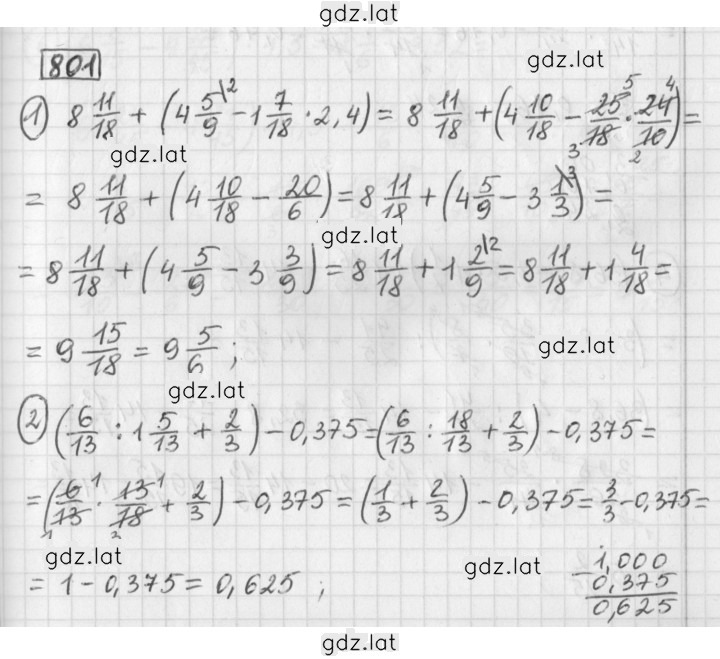 gdz.lat
801
gdz.lat
1) 8 11/18 + (4 5/9 \2 - 1 7/18 · 2,4) = 8 11/18 + (4 10/18 - 25 5/18 3 · 24 4/10 2) =
gdz.lat
= 8 11/18 + (4 10/18 - 20/6) = 8 11/18 + (4 5/9 - 3 1/3 \3) =
gdz.lat
= 8 11/18 + (4 5/9 - 3 3/9) = 8 11/18 + 1 2/9 \2 = 8 11/18 + 1 4/18 =
= 9 15/18 = 9 5/6 ;
gdz.lat
gdz.lat
2) (6/13 : 1 5/13 + 2/3) - 0,375 = (6/13 : 18/13 + 2/3) - 0,375 =
= (6 1/13 1 · 13 1/18 3 + 2/3) - 0,375 = (1/3 + 2/3) - 0,375 = 3/3 - 0,375 =
gdz.lat
gdz.lat
= 1 - 0,375 = 0,625 ;
- 1,000
0,375
0,625
gdz.lat